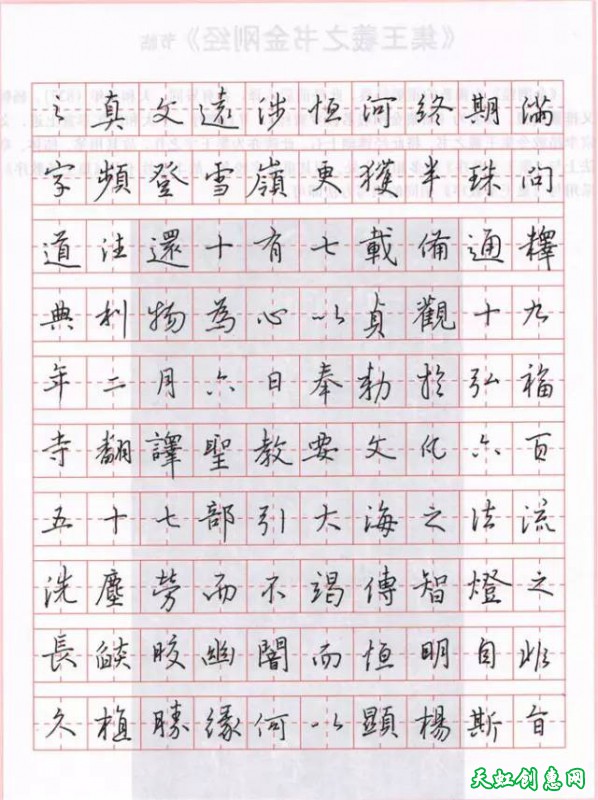 《集王羲之书金刚经》节临
之真文遠涉恒河終期滿
字頻登雪嶺更獲半珠問
道往還十有七載備通釋
典利物為心以貞觀十九
年二月六日奉勅於弘福
寺翻譯聖教要文凡六百
五十七部引大海之法流
洗塵勞而不竭傳智燈之
長燄皎幽闇而恒明自非
久植勝緣何以顯楊斯旨
天虹创惠网